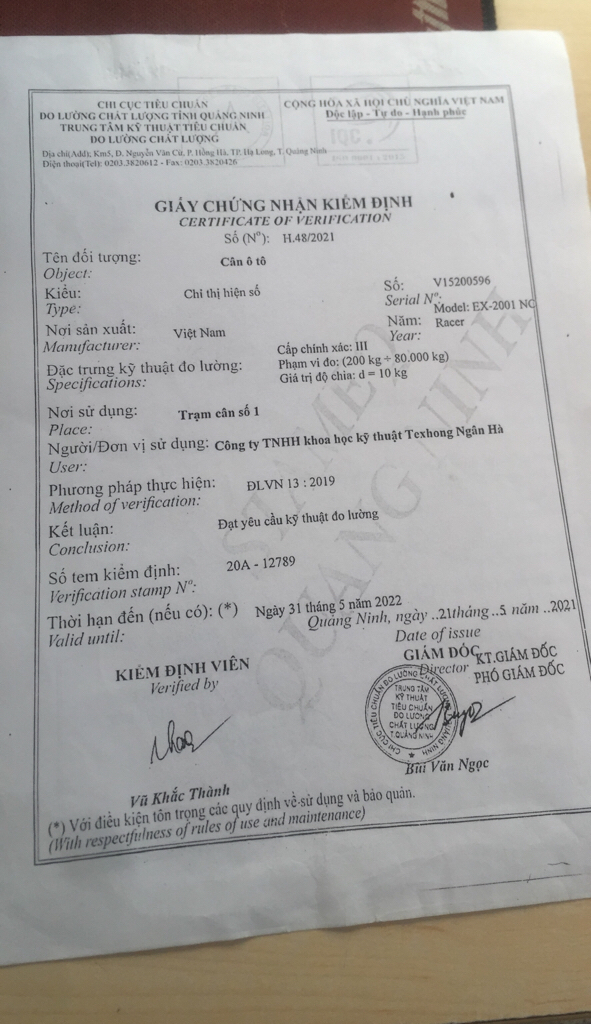 CHI CỤC TIÊU CHUẨN
ĐO LƯỜNG CHẤT LƯỢNG TỈNH QUẢNG NINH
TRUNG TÂM KỸ THUẬT TIÊU CHUẨN
ĐO LƯỜNG CHẤT LƯỢNG
Địa chỉ(Add): Km5, Đ. Nguyễn Văn Cừ, P. Hồng Hà, TP. Hạ Long, T. Quảng Ninh
Điện thoại(Tel): 0203.3820612 - Fax: 0203.3820426
CỘNG HÒA XÃ HỘI CHỦ NGHĨA VIỆT NAM
Độc lập - Tự do - Hạnh phúc
GIẤY CHỨNG NHẬN KIỂM ĐỊNH
CERTIFICATE OF VERIFICATION
Số (Nº): H.48/2021
Tên đối tượng: Cân ô tô
Object:
Kiểu: Chỉ thị hiện số Số: V15200596
Type: Serial Nº: Model: EX-2001 NC
Nơi sản xuất: Việt Nam Năm: Racer
Manufacturer: Year:
Cấp chính xác: III
Đặc trưng kỹ thuật đo lường: Phạm vi đo: (200 kg ÷ 80.000 kg)
Specifications: Giá trị độ chia: d = 10 kg
Nơi sử dụng: Trạm cân số 1
Place:
Người/Đơn vị sử dụng: Công ty TNHH khoa học kỹ thuật Texhong Ngân Hà
User:
Phương pháp thực hiện: ĐLVN 13 : 2019
Method of verification:
Kết luận: Đạt yêu cầu kỹ thuật đo lường
Conclusion:
Số tem kiểm định: 20A - 12789
Verification stamp Nº:
Thời hạn đến (nếu có): (*) Ngày 31 tháng 5 năm 2022
Valid until:
Quảng Ninh, ngày ..21tháng ..5 năm ..2021
Date of issue
KIỂM ĐỊNH VIÊN
Verified by
GIÁM ĐỐC KT.GIÁM ĐỐC
Director PHÓ GIÁM ĐỐC
CHI CỤC TIÊU CHUẨN ĐO LƯỜNG CHẤT LƯỢNG QUẢNG NINH
TRUNG TÂM
KỸ THUẬT
TIÊU CHUẨN
ĐO LƯỜNG
CHẤT LƯỢNG
T.QUẢNG NINH
Vũ Khắc Thành
Bùi Văn Ngọc
(*) Với điều kiện tôn trọng các quy định về sử dụng và bảo quản.
(With respectfulness of rules of use and maintenance)
STAMEQ
QUANG NINH